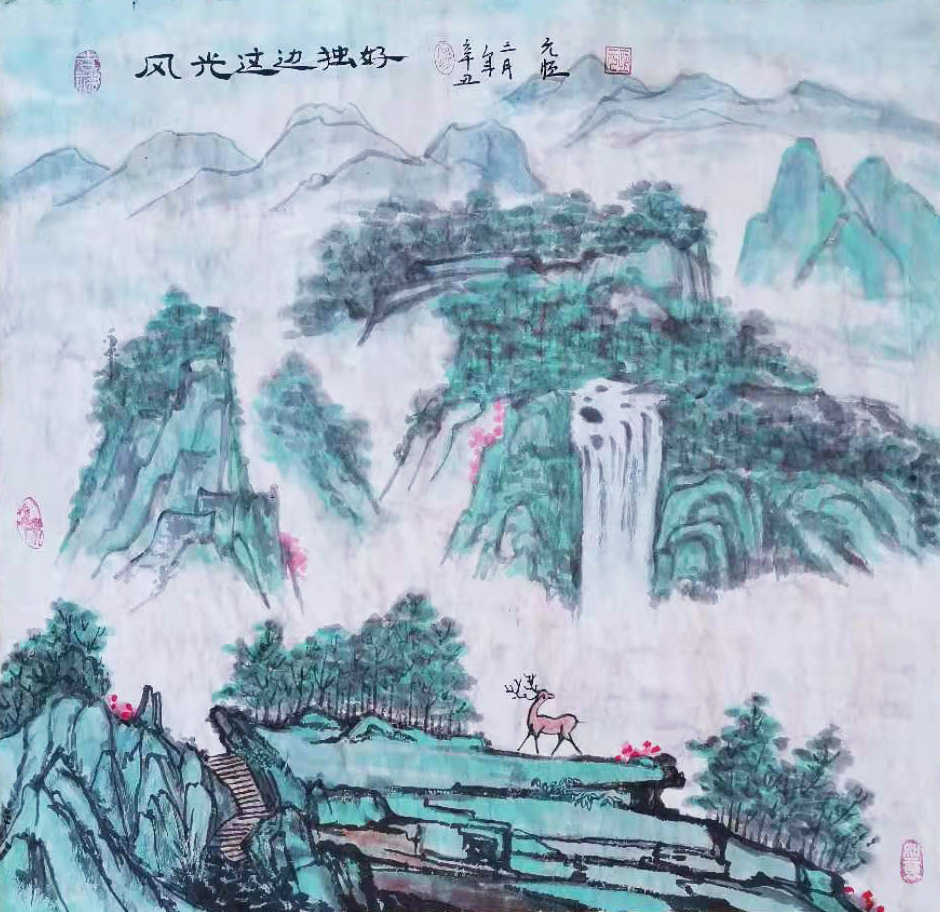 风光这边独好
辛丑
年
三月
元恒